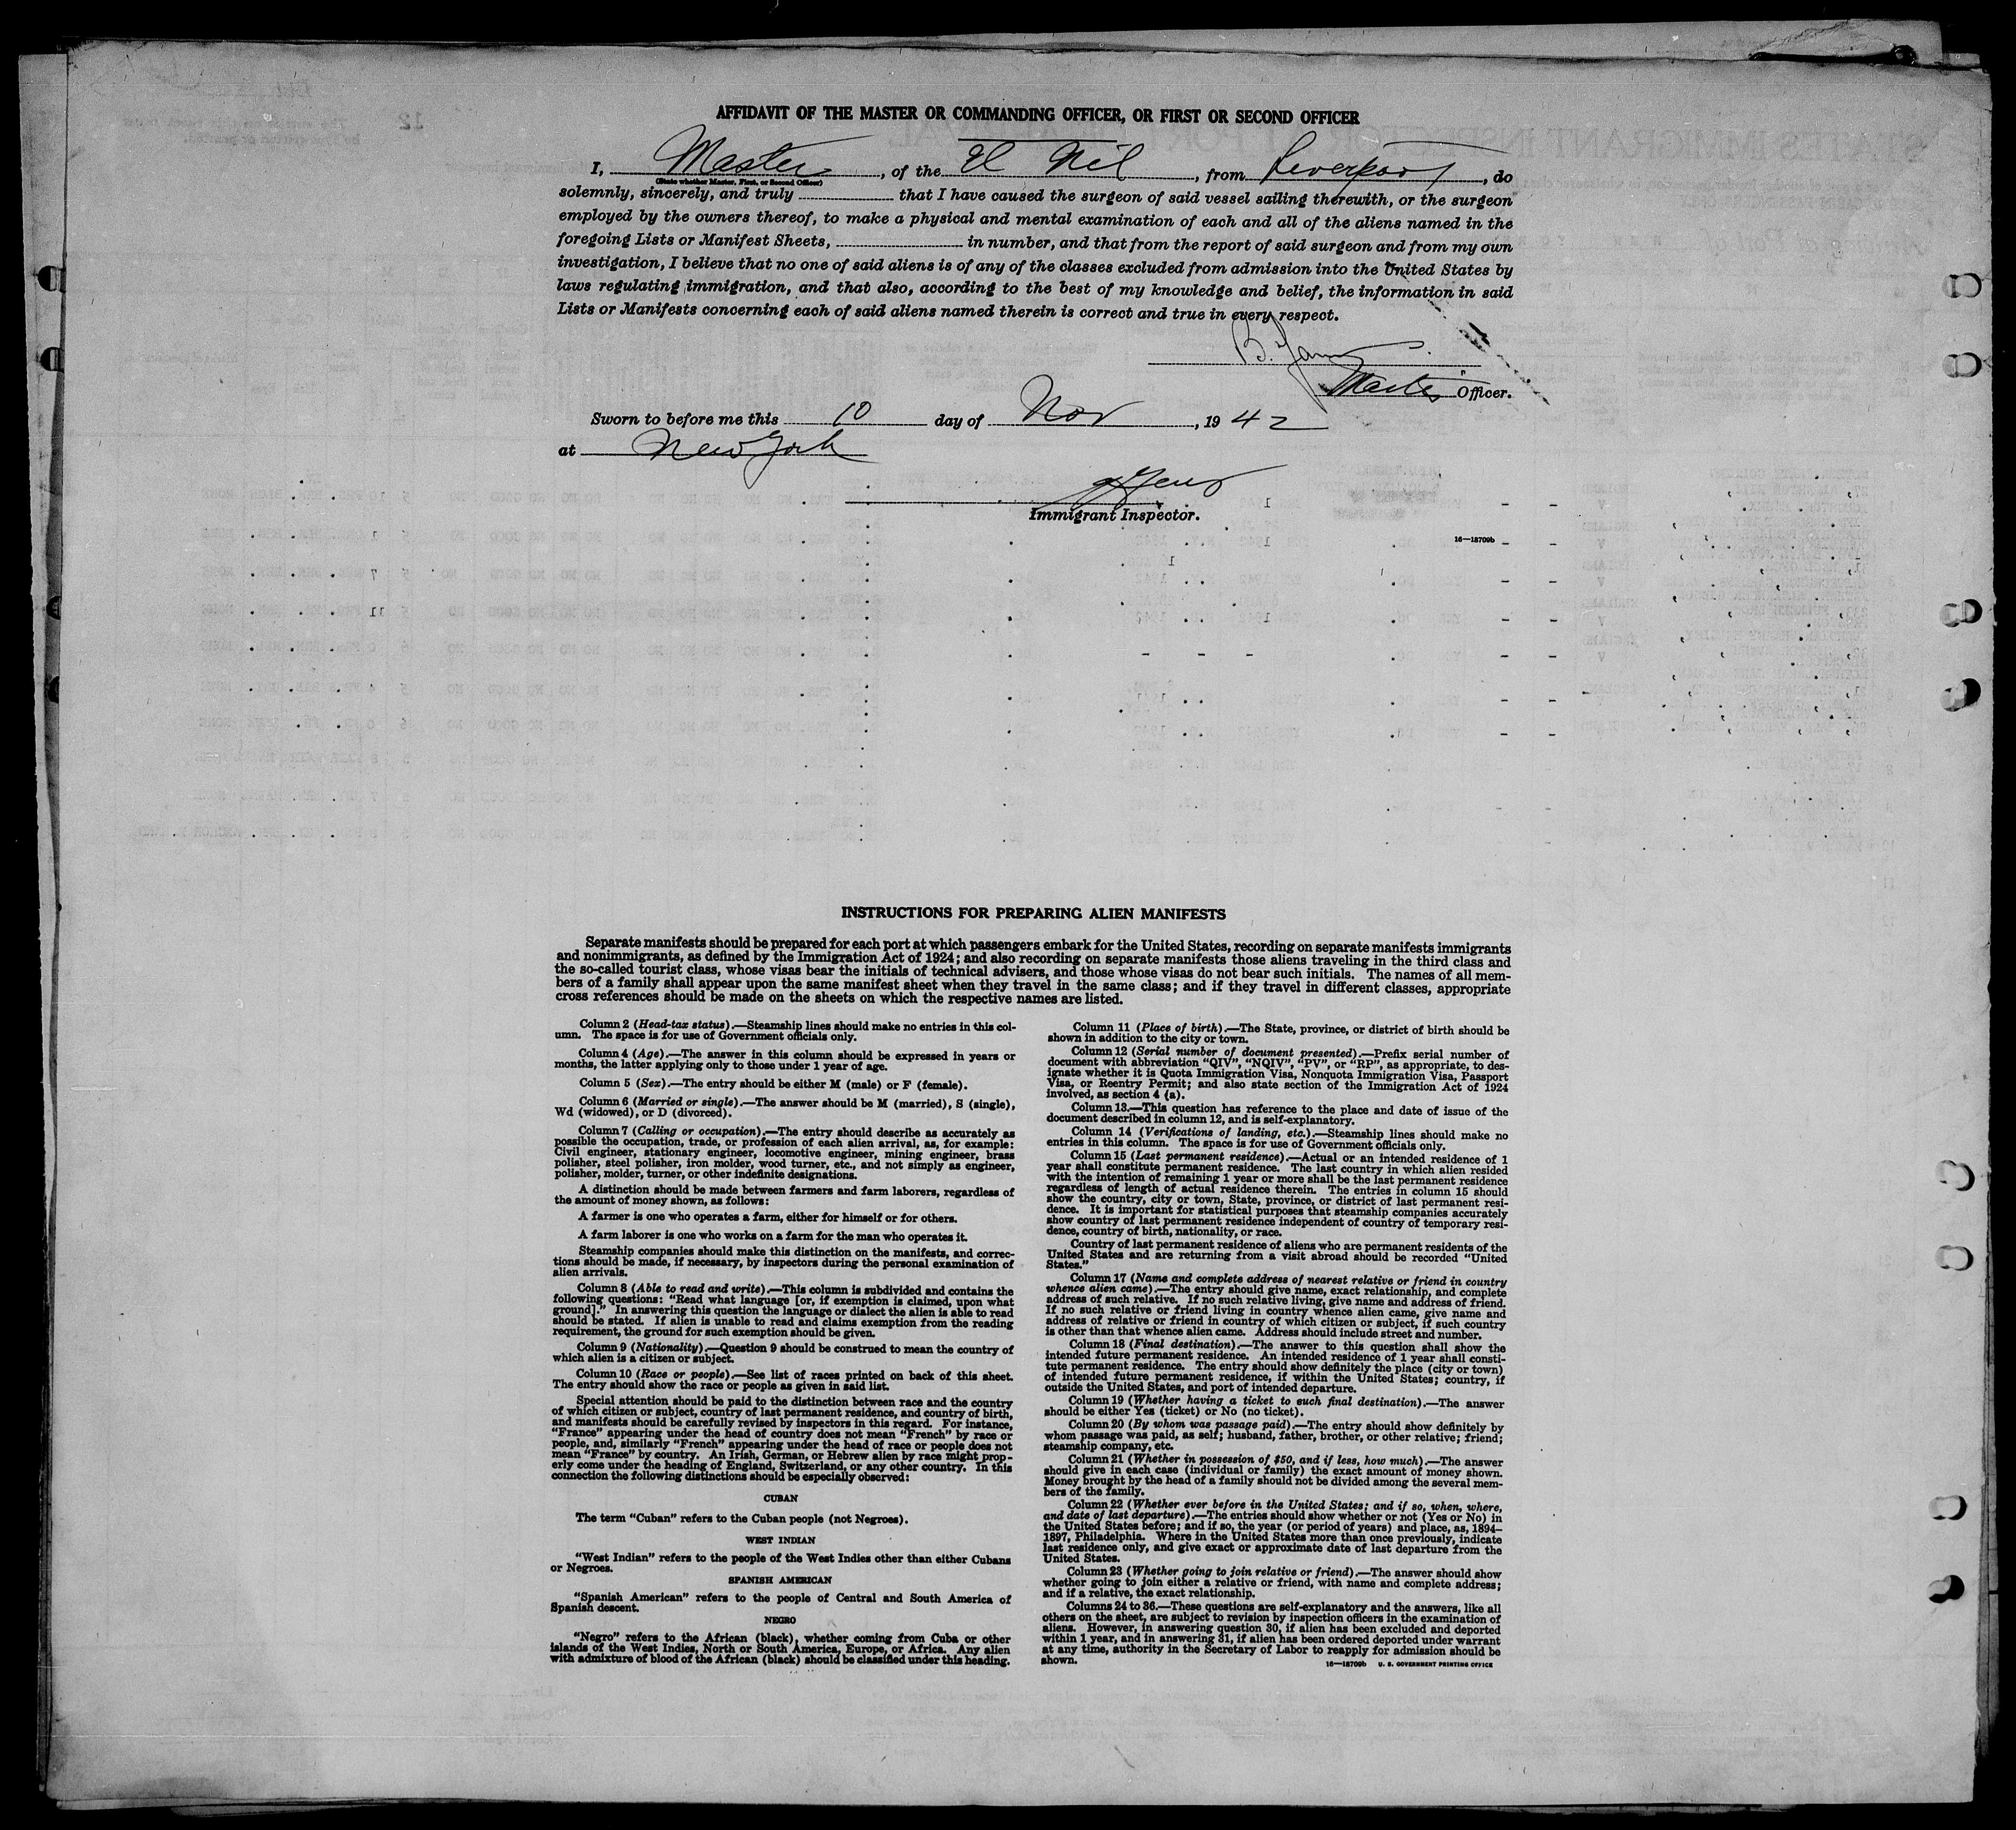 AFFIDAVIT OF THE MASTER OR COMMANDING OFFICER, OR FIRST OR SECOND OFFICER
I, Master, of the El Nil, from Liverpool, do
(State whether Master, First, or Second Officer)
solemnly, sincerely, and truly that I have caused the surgeon of said vessel sailing therewith, or the surgeon
employed by the owners thereof, to make a physical and mental examination of each and all of the aliens named in the
foregoing Lists or Manifest Sheets, in number, and that from the report of said surgeon and from my own
investigation, I believe that no one of said aliens is of any of the classes excluded from admission into the United States by
laws regulating immigration, and that also, according to the best of my knowledge and belief, the information in said
Lists or Manifests concerning each of said aliens named therein is correct and true in every respect.
B.
Master Officer.
Sworn to before me this 10 day of Nov, 1942
at New York
Immigrant Inspector.
16—18709b
INSTRUCTIONS FOR PREPARING ALIEN MANIFESTS
Separate manifests should be prepared for each port at which passengers embark for the United States, recording on separate manifests immigrants
and nonimmigrants, as defined by the Immigration Act of 1924; and also recording on separate manifests those aliens traveling in the third class and
the so-called tourist class, whose visas bear the initials of technical advisers, and those whose visas do not bear such initials. The names of all mem-
bers of a family shall appear upon the same manifest sheet when they travel in the same class; and if they travel in different classes, appropriate
cross references should be made on the sheets on which the respective names are listed.
Column 2 (Head-tax status).—Steamship lines should make no entries in this col-
umn. The space is for use of Government officials only.
Column 4 (Age).—The answer in this column should be expressed in years or
months, the latter applying only to those under 1 year of age.
Column 5 (Sex).—The entry should be either M (male) or F (female).
Column 6 (Married or single).—The answer should be M (married), S (single),
Wd (widowed), or D (divorced).
Column 7 (Calling or occupation).—The entry should describe as accurately as
possible the occupation, trade, or profession of each alien arrival, as, for example:
Civil engineer, stationary engineer, locomotive engineer, mining engineer, brass
polisher, steel polisher, iron molder, wood turner, etc., and not simply as engineer,
polisher, molder, turner, or other indefinite designations.
A distinction should be made between farmers and farm laborers, regardless of
the amount of money shown, as follows:
A farmer is one who operates a farm, either for himself or for others.
A farm laborer is one who works on a farm for the man who operates it.
Steamship companies should make this distinction on the manifests, and correc-
tions should be made, if necessary, by inspectors during the personal examination of
alien arrivals.
Column 8 (Able to read and write).—This column is subdivided and contains the
following questions: “Read what language [or, if exemption is claimed, upon what
ground].” In answering this question the language or dialect the alien is able to read
should be stated. If alien is unable to read and claims exemption from the reading
requirement, the ground for such exemption should be given.
Column 9 (Nationality).—Question 9 should be construed to mean the country of
which alien is a citizen or subject.
Column 10 (Race or people).—See list of races printed on back of this sheet.
The entry should show the race or people as given in said list.
Special attention should be paid to the distinction between race and the country
of which citizen or subject, country of last permanent residence, and country of birth,
and manifests should be carefully revised by inspectors in this regard. For instance,
“France” appearing under the head of country does not mean “French” by race or
people, and, similarly “French” appearing under the head of race or people does not
mean “France” by country. An Irish, German, or Hebrew alien by race might prop-
erly come under the heading of England, Switzerland, or any other country. In this
connection the following distinctions should be especially observed:
CUBAN
The term “Cuban” refers to the Cuban people (not Negroes).
WEST INDIAN
“West Indian” refers to the people of the West Indies other than either Cubans
or Negroes.
SPANISH AMERICAN
“Spanish American” refers to the people of Central and South America of
Spanish descent.
NEGRO
“Negro” refers to the African (black), whether coming from Cuba or other
islands of the West Indies, North or South America, Europe, or Africa. Any alien
with admixture of blood of the African (black) should be classified under this heading.
Column 11 (Place of birth).—The State, province, or district of birth should be
shown in addition to the city or town.
Column 12 (Serial number of document presented).—Prefix serial number of
document with abbreviation “QIV”, “NQIV”, “PV”, or “RP”, as appropriate, to des-
ignate whether it is Quota Immigration Visa, Nonquota Immigration Visa, Passport
Visa, or Reentry Permit; and also state section of the Immigration Act of 1924
involved, as section 4 (a).
Column 13.—This question has reference to the place and date of issue of the
document described in column 12, and is self-explanatory.
Column 14 (Verifications of landing, etc.).—Steamship lines should make no
entries in this column. The space is for use of Government officials only.
Column 15 (Last permanent residence).—Actual or an intended residence of 1
year shall constitute permanent residence. The last country in which alien resided
with the intention of remaining 1 year or more shall be the last permanent residence
regardless of length of actual residence therein. The entries in column 15 should
show the country, city or town, State, province, or district of last permanent resi-
dence. It is important for statistical purposes that steamship companies accurately
show country of last permanent residence independent of country of temporary resi-
dence, country of birth, nationality, or race.
Country of last permanent residence of aliens who are permanent residents of the
United States and are returning from a visit abroad should be recorded “United
States.”
Column 17 (Name and complete address of nearest relative or friend in country
whence alien came).—The entry should give name, exact relationship, and complete
address of such relative. If no such relative living, give name and address of friend.
If no such relative or friend living in country whence alien came, give name and
address of relative or friend in country of which citizen or subject, if such country
is other than that whence alien came. Address should include street and number.
Column 18 (Final destination).—The answer to this question shall show the
intended future permanent residence. An intended residence of 1 year shall consti-
tute permanent residence. The entry should show definitely the place (city or town)
of intended future permanent residence, if within the United States; country, if
outside the United States, and port of intended departure.
Column 19 (Whether having a ticket to such final destination).—The answer
should be either Yes (ticket) or No (no ticket).
Column 20 (By whom was passage paid).—The entry should show definitely by
whom passage was paid, as self; husband, father, brother, or other relative; friend;
steamship company, etc.
Column 21 (Whether in possession of $50, and if less, how much).—The answer
should give in each case (individual or family) the exact amount of money shown.
Money brought by the head of a family should not be divided among the several mem-
bers of the family.
Column 22 (Whether ever before in the United States; and if so, when, where,
and date of last departure).—The entries should show whether or not (Yes or No) in
the United States before; and if so, the year (or period of years) and place, as, 1894–
1897, Philadelphia. Where in the United States more than once previously, indicate
last residence only, and give exact or approximate date of last departure from the
United States.
Column 23 (Whether going to join relative or friend).—The answer should show
whether going to join either a relative or friend, with name and complete address;
and if a relative, the exact relationship.
Columns 24 to 36.—These questions are self-explanatory and the answers, like all
others on the sheet, are subject to revision by inspection officers in the examination of
aliens. However, in answering question 30, if alien has been excluded and deported
within 1 year, and in answering 31, if alien has been ordered deported under warrant
at any time, authority in the Secretary of Labor to reapply for admission should be
shown.
16—18709b U. S. GOVERNMENT PRINTING OFFICE